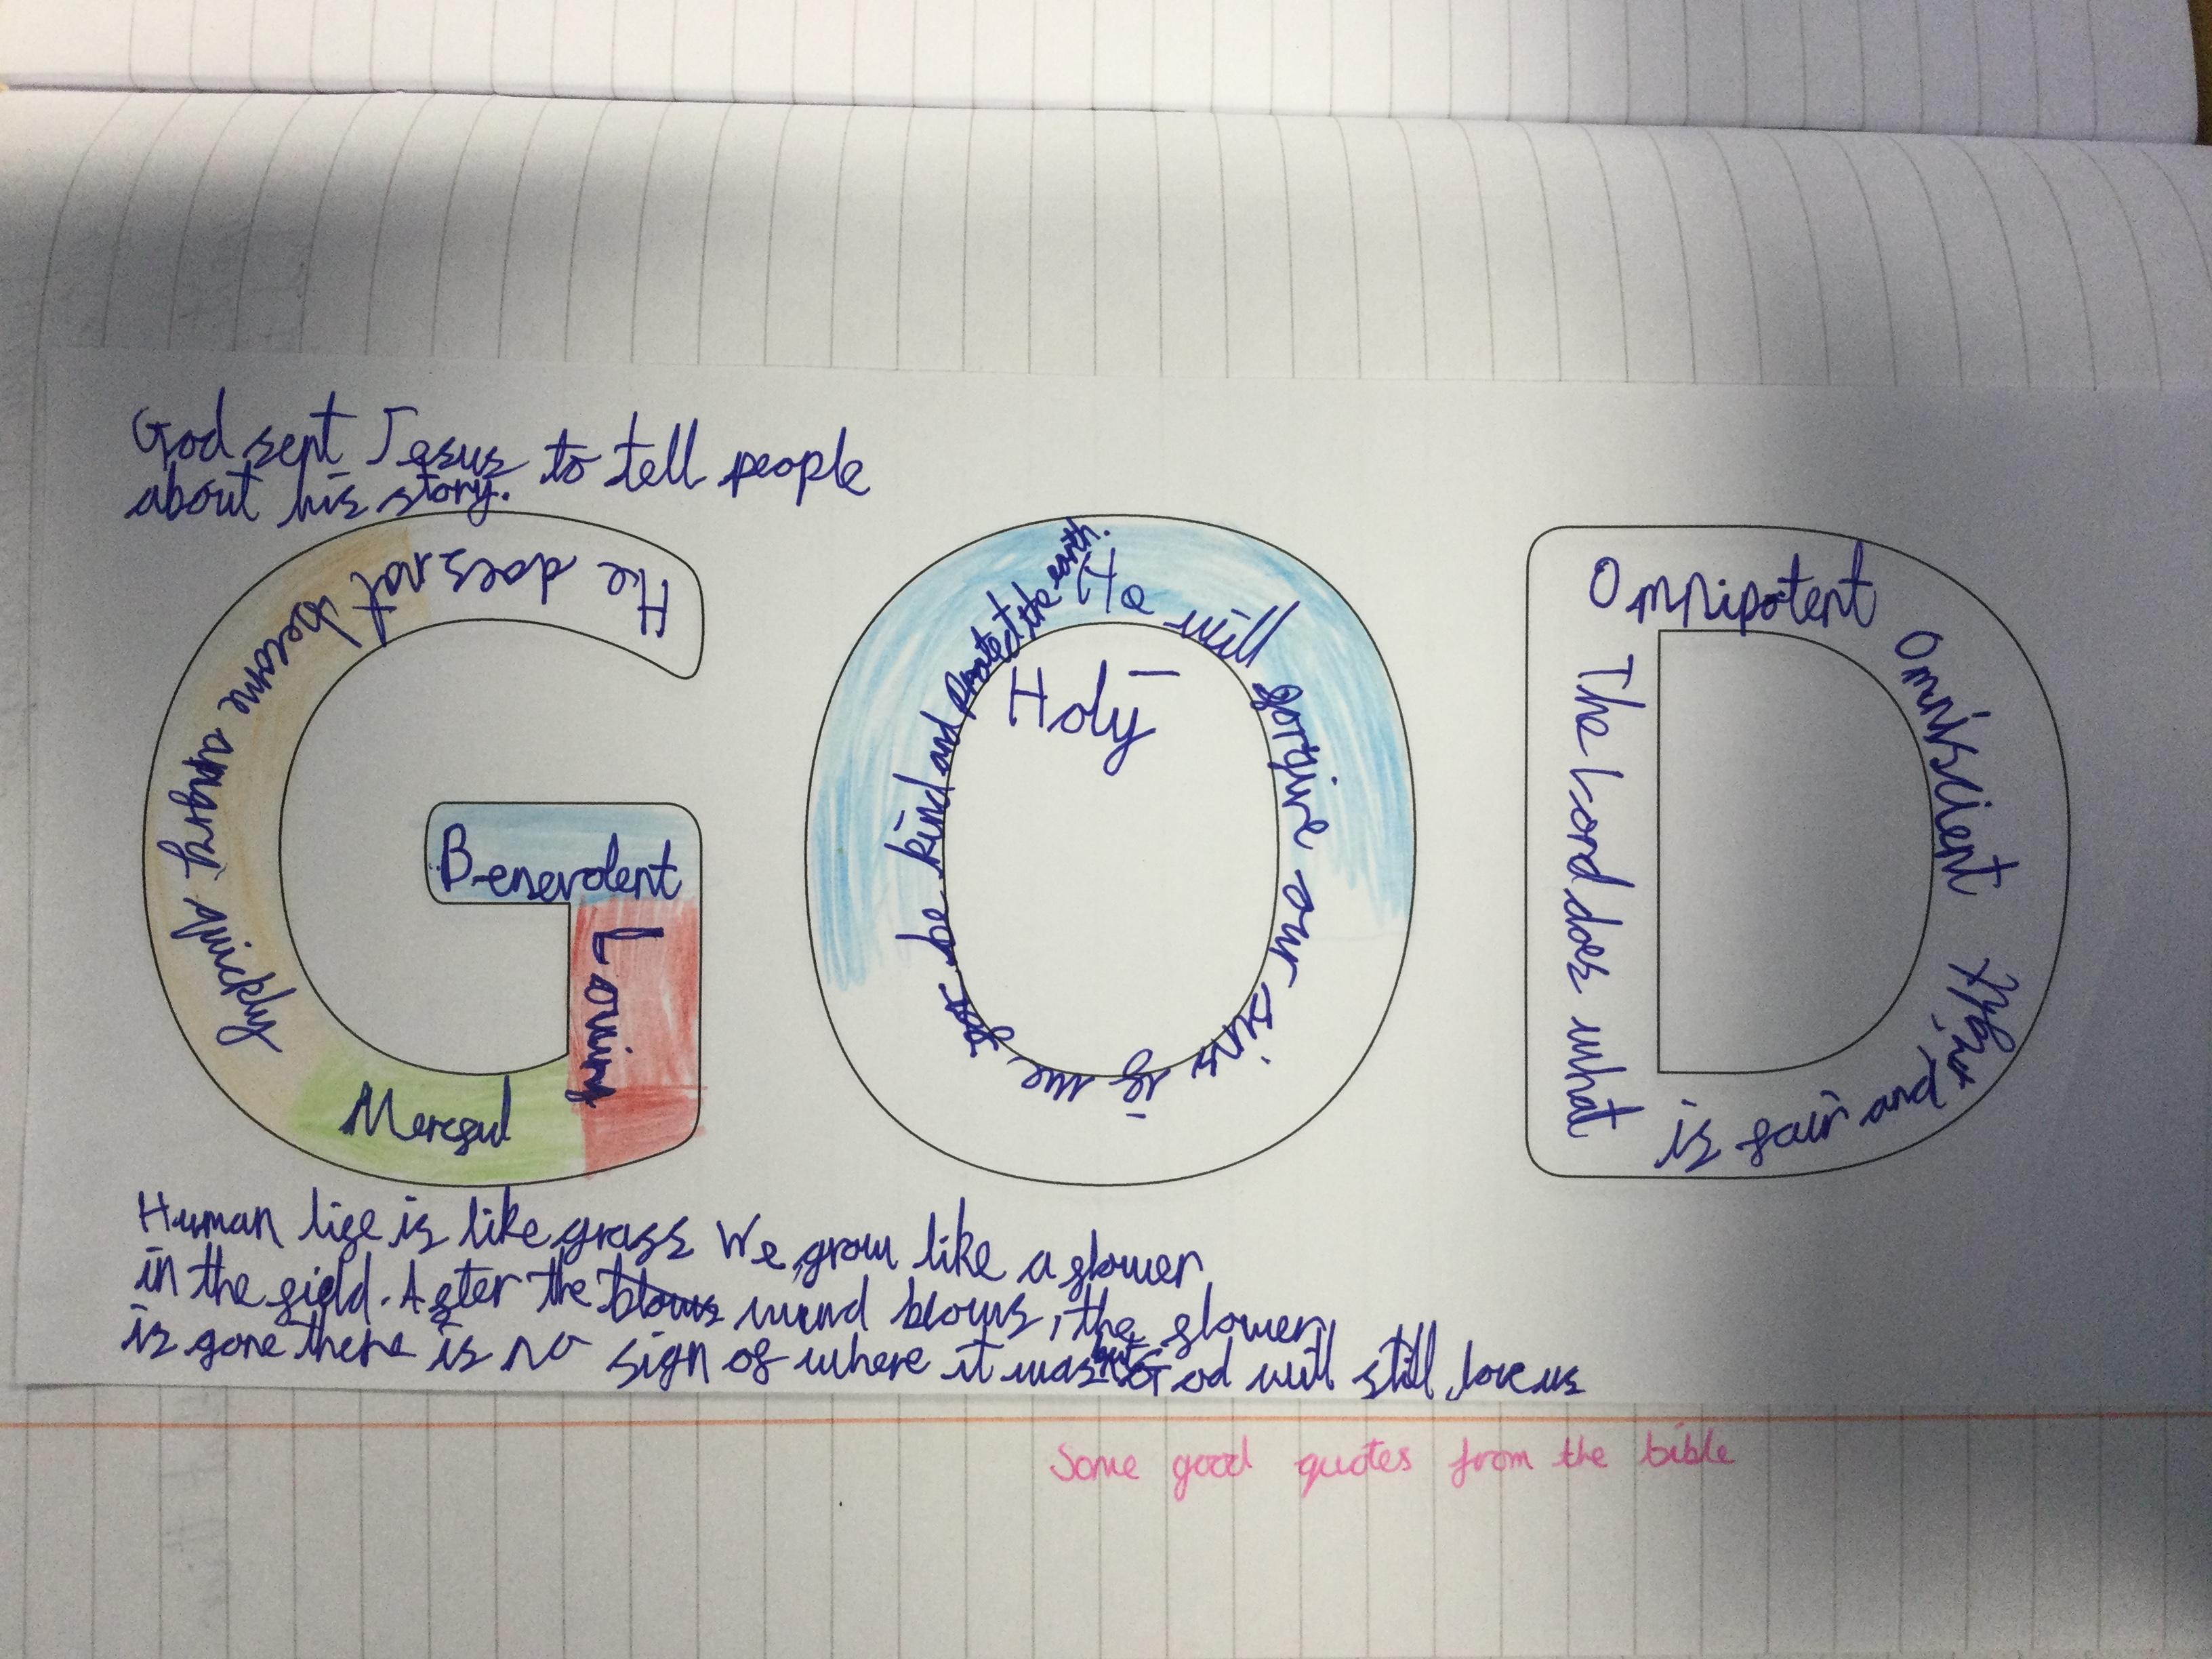 God sent Jesus to tell people
about his story.
He does not become angry quickly
Benevolent
Loving
Merciful
He will forgive our sins if we for be kind and protect the earth.
Holy
Omnipotent
Omniscient
The Lord does what
is fair and right
Human life is like grass We grow like a flower
in the field. After the blows wind blows, the flower
is gone there is no sign of where it was but God will still love us
Some good quotes from the bible